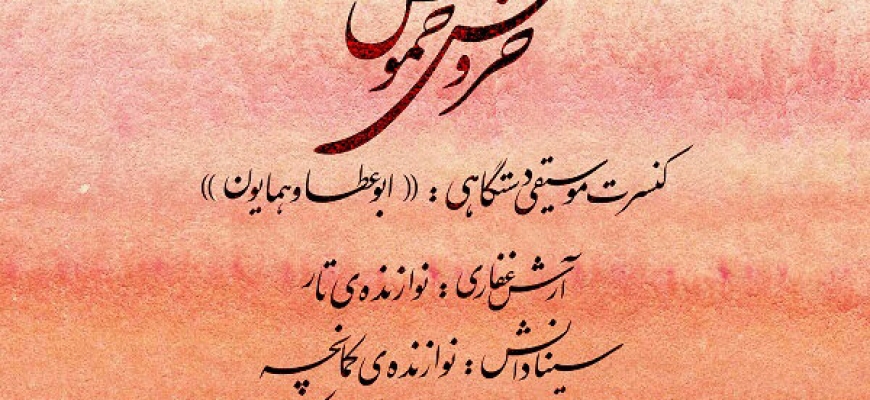 خروش خموش
کنسرت موسیقی دستگاهی : (( ابوعطا و همایون ))
آرش غفاری : نوازنده‌ی تار
سینا دانش : نوازنده‌ی کمانچه